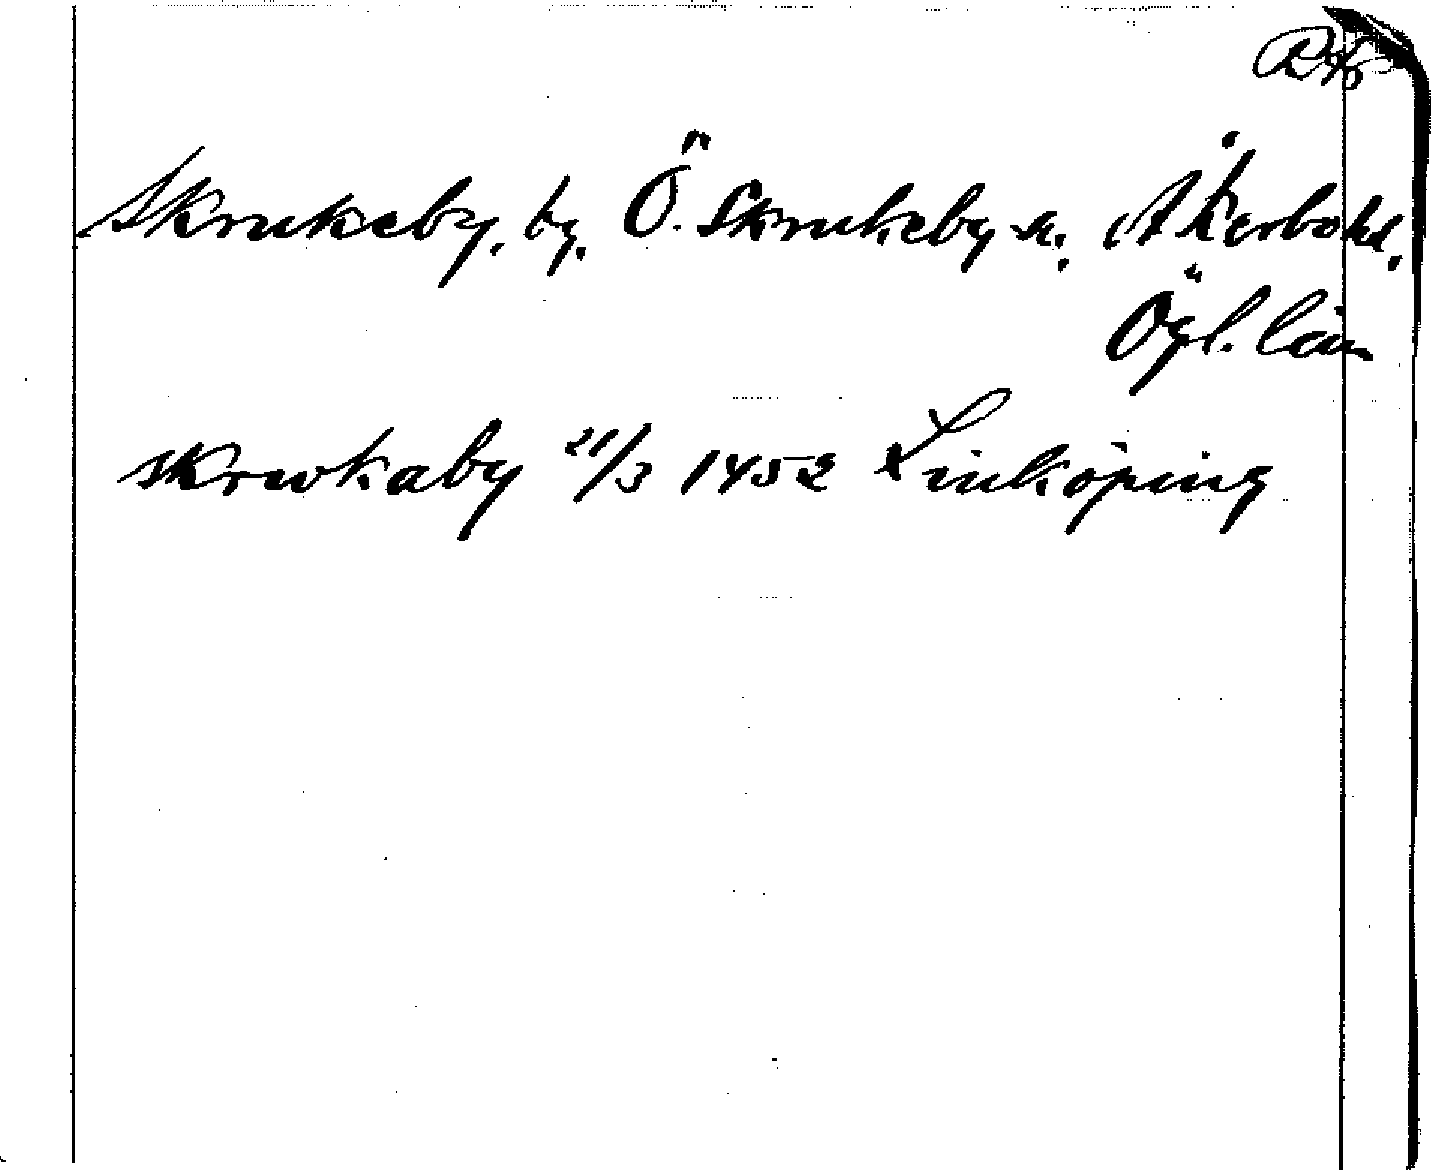 Skrukeby, by, Ö. Skrukeby sn. Åkerbo hd.
Ögl. län
skrwkaby 21/3 1452 Linköping